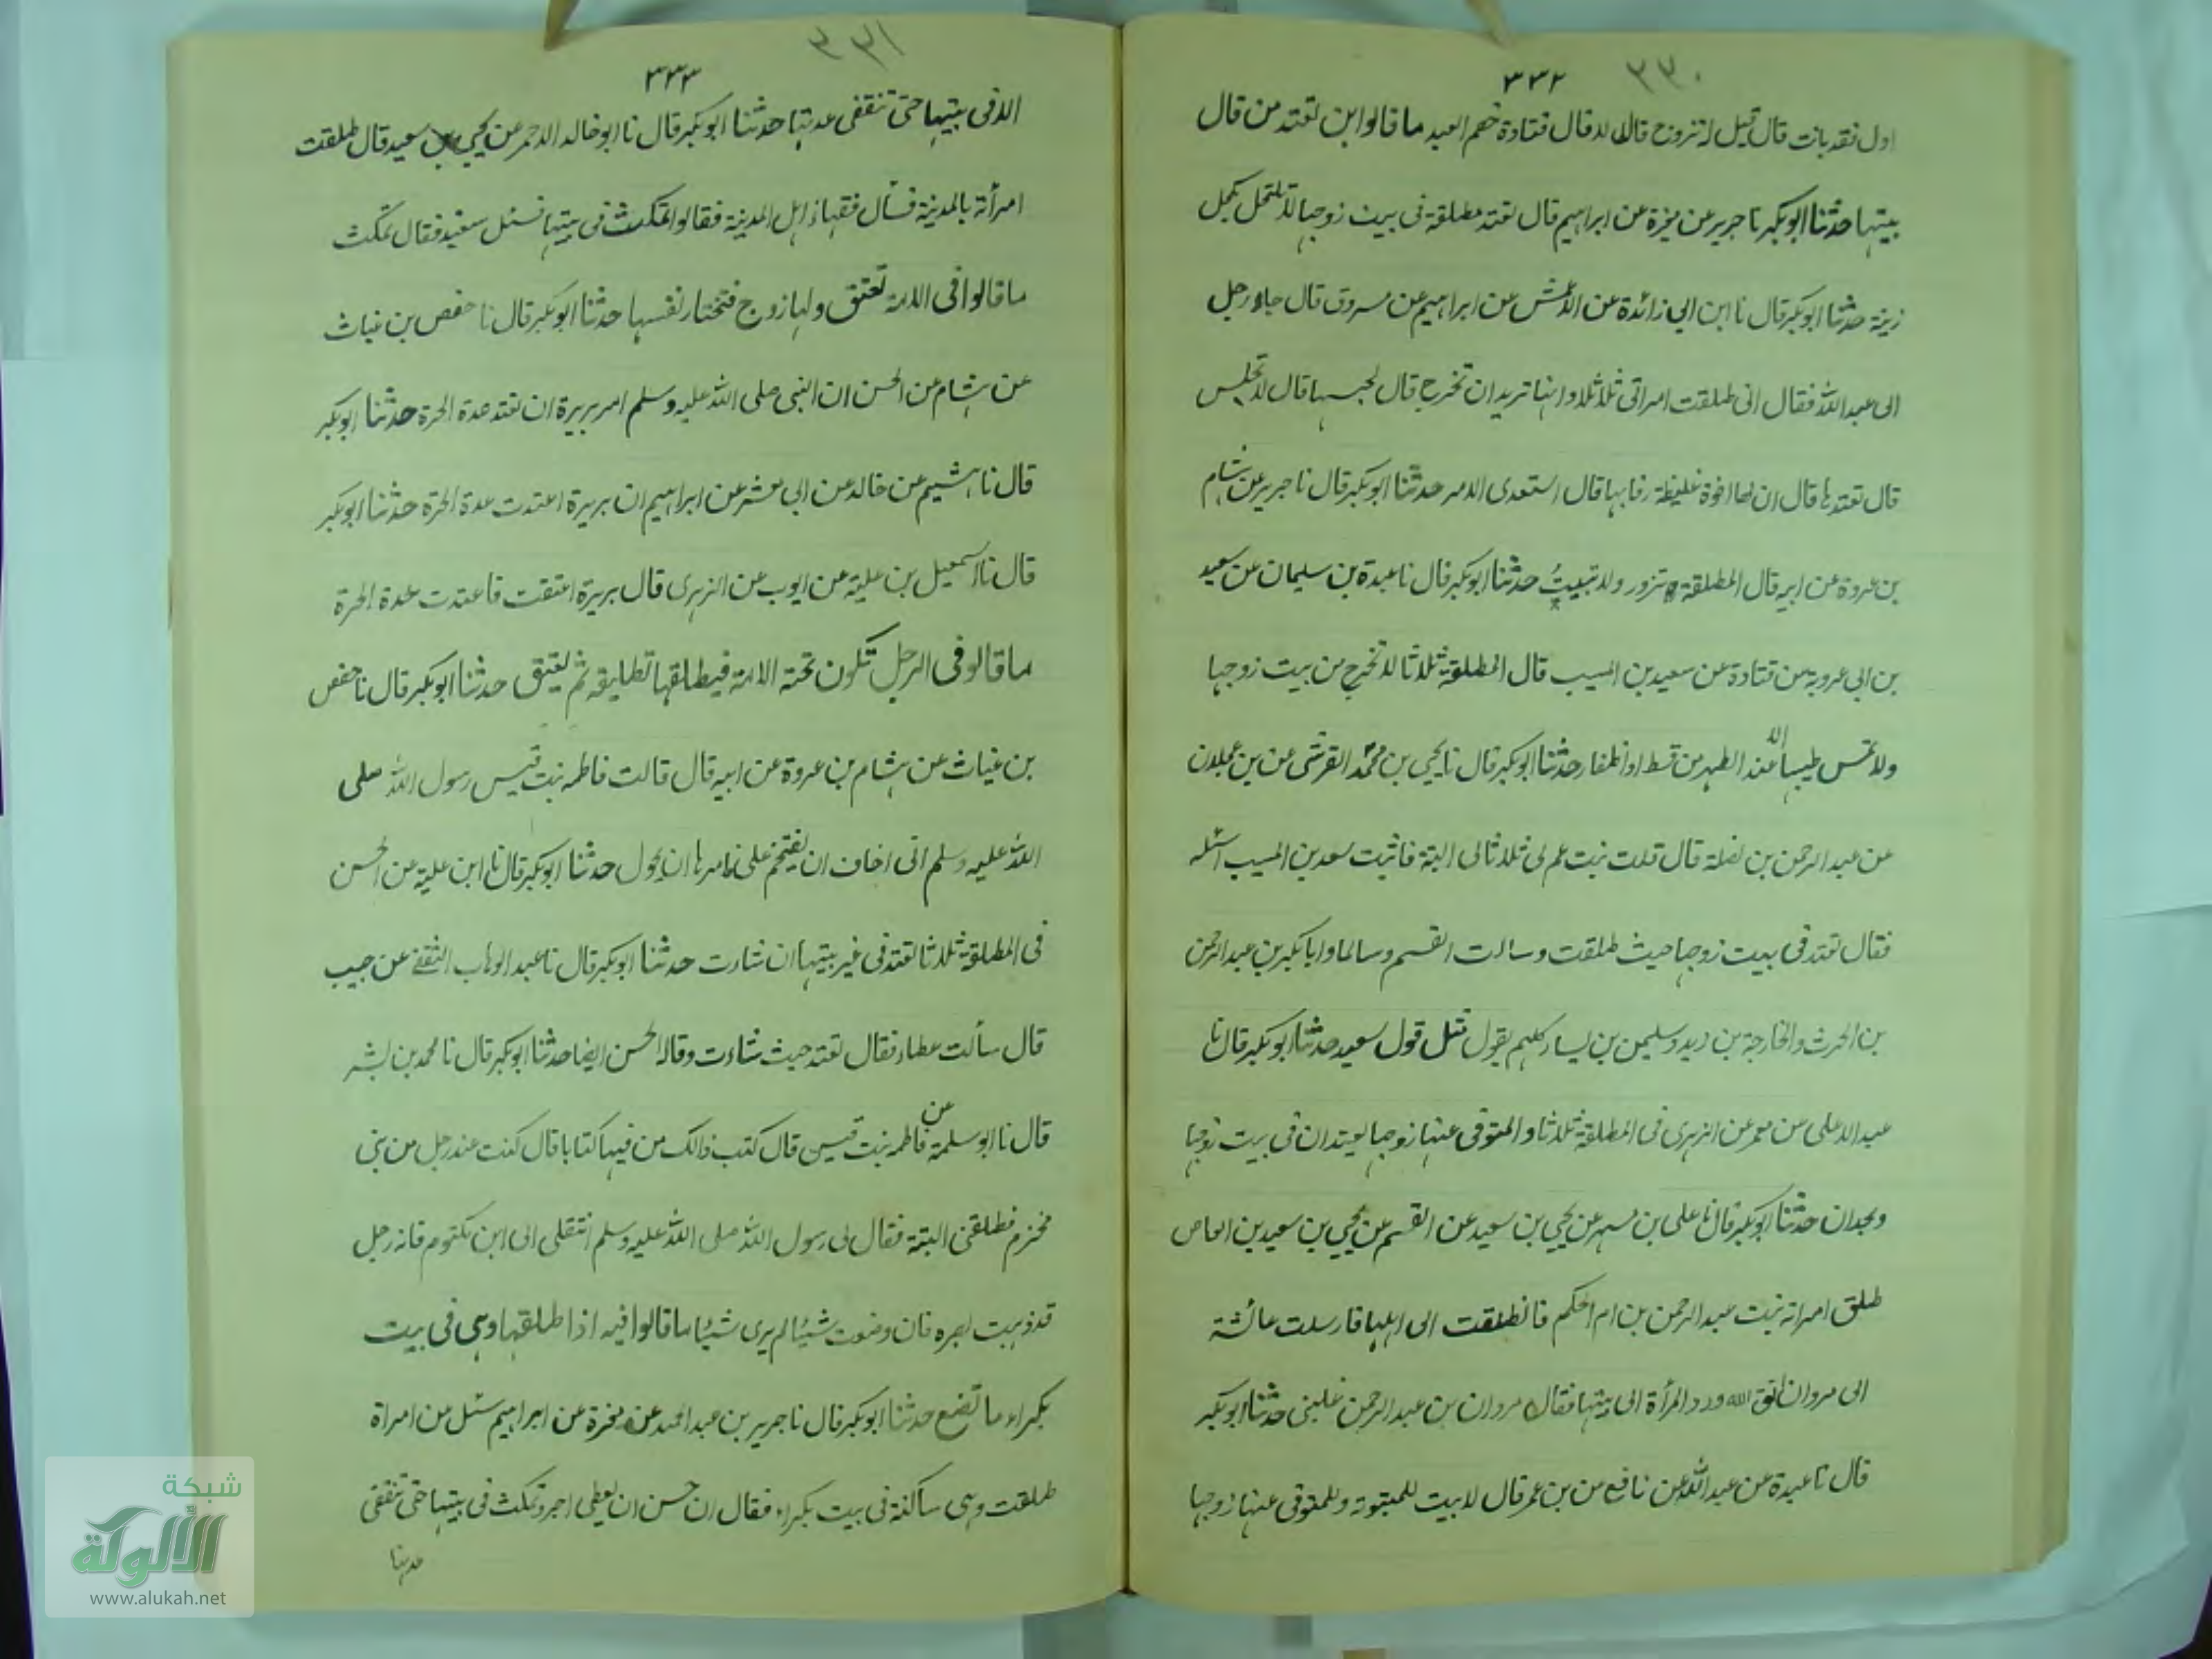 ٣٣٠
٣٣٢
اول فقد بانت قال قيل له تزوج قال لا قال قتادة خصم العبد ما قالوا اين تعتد من قال
بيتها حدثنا ابوبكر نا جرير عن مغيرة عن ابراهيم قال تعتد مطلقة فى بيت زوجها لا تكتحل بكحل
زينة حدثنا ابوبكر قال نا ابن ابى زائدة عن الاعمش عن ابراهيم عن مسروق قال جاء رجل
الى عبد الله فقال انى طلقت امراتى ثلاثا وانها تريد ان تخرج قال احبسها قال لا تجلس
قال تعتدها قال ان لها اخوة غليظة رقابها قال استعدى الامير حدثنا ابوبكر قال نا جرير عن هشام
بن عروة عن ابيه قال المطلقة تزور ولا تبيت حدثنا ابوبكر قال نا عبدة بن سليمان عن سعيد
بن ابى عروبة عن قتادة عن سعيد بن المسيب قال المطلقة ثلاثا لا تخرج من بيت زوجها
ولا تمس طيبا الا عند الطهر من قسط او اظفار حدثنا ابوبكر قال نا يحيى بن محمد القرشى عن بن عجلان
عن عبد الرحمن بن نضلة قال طلقت بنت عم لى ثلاثا البتة فاتيت سعيد بن المسيب اسئله
فقال تعتد فى بيت زوجها حيث طلقت وسالت القسم وسالما وابا بكر بن عبد الرحمن
بن الحرث والخارجة بن زيد وسليمن بن يسار كلهم يقول مثل قول سعيد حدثنا ابوبكر قال نا
عبد الاعلى عن معمر عن الزهرى فى المطلقة ثلاثا والمتوفى عنها زوجها يعتدان فى بيت زوجها
ويحدان حدثنا ابوبكر قال نا على بن مسهر عن يحيى بن سعيد عن القسم عن يحيى بن سعيد بن العاص
طلق امراته بنت عبد الرحمن بن ام الحكم فانطلقت الى اهلها فارسلت عائشة
الى مروان اتق الله ورد المرأة الى بيتها فقال مروان بن عبد الرحمن غلبنى حدثنا ابوبكر
قال نا عبدة عن عبد الله عن نافع عن بن عمر قال لا بيت للمبتوتة وللمتوفى عنها زوجها
٣٣١
٣٣٣
الا فى بيتها حتى تنقضى عدتها حدثنا ابوبكر قال نا ابو خالد الاحمر عن يحيى بن سعيد قال طلقت
امرأة بالمدينة فسأل فقهاء اهل المدينة فقالوا تمكث فى بيتها فسئل سعيد فقال تمكث
ما قالوا فى الامة تعتق ولها زوج فتختار نفسها حدثنا ابوبكر قال نا حفص بن غياث
عن هشام عن الحسن ان النبى صلى الله عليه وسلم امر بريرة ان تعتد عدة الحرة حدثنا ابوبكر
قال نا هشيم عن خالد عن ابى معشر عن ابراهيم ان بريرة اعتدت عدة الحرة حدثنا ابوبكر
قال نا اسمعيل بن علية عن ايوب عن الزهرى قال بريرة اعتقت فاعتدت عدة الحرة
ما قالو فى الرجل تكون تحته الامة فيطلقها تطليقه ثم تعتق حدثنا ابوبكر قال نا حفص
بن غياث عن هشام بن عروة عن ابيه قال قالت فاطمه بنت قيس رسول الله صلى
الله عليه وسلم انى اخاف ان يقتحم على فامرها ان يحول حدثنا ابوبكر قال نا ابن علية عن الحسن
فى المطلقة ثلاثا تعتد فى غير بيتها ان شاءت حدثنا ابوبكر قال نا عبد الوهاب الثقفى عن حبيب
قال سألت عطاء فقال تعتد حيث شاءت وقاله الحسن ايضا حدثنا ابوبكر قال نا محمد بن بشر
قال نا ابو سلمة عن فاطمه بنت قيس قال كتب ذالك من فيها كتابا قال كنت عند رجل من بنى
مخزم فطلقنى البتة فقال لى رسول الله صلى الله عليه وسلم انتقلى الى ابن مكتوم فانه رجل
قد ذهبت بصره فان وضعت شيئا لم يرى شيئا ما قالوا فيه اذا طلقها وهى فى بيت
بكراء ما تصنع حدثنا ابوبكر قال نا جرير بن عبد الحميد عن مغيرة عن ابراهيم سئل من امراة
طلقت وهى ساكنة فى بيت بكراء فقال ان حسن ان يعطى اجر وتمكث فى بيتها حتى تنقضى
عدتها
شبكة
الألوكة
www.alukah.net